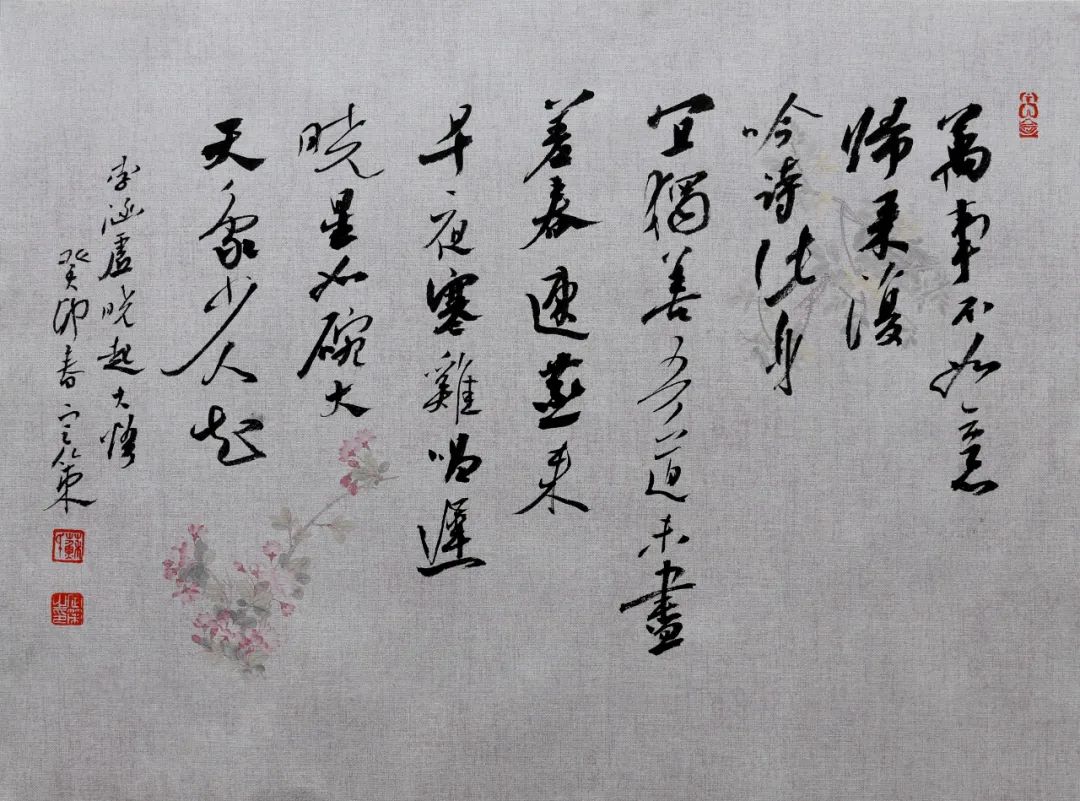 萬事不如意
歸來復
吟詩此身
宜獨善吾道未盡
差春速燕來
早夜寒雞唱遲
曉星如碗大
天象少人知
李涵虛曉起大悟
癸卯春定策